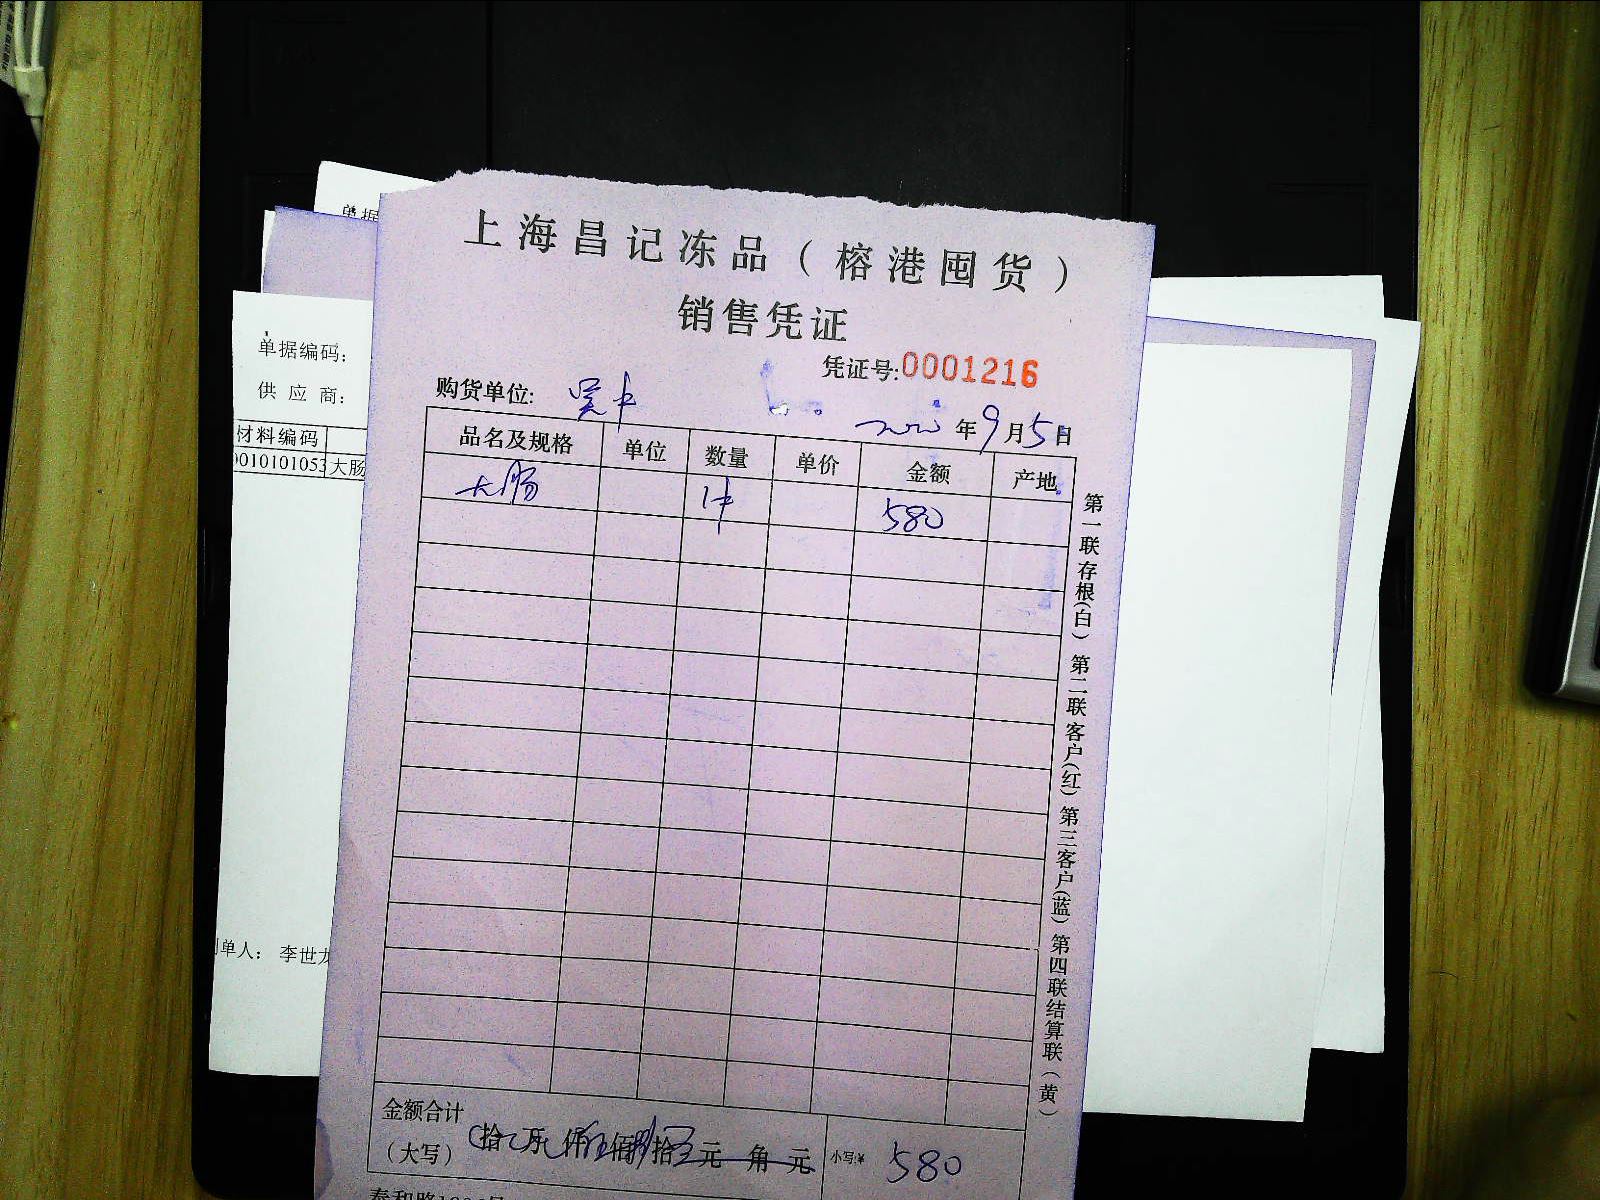 单据
上海昌记冻品（榕港囤货）
销售凭证
凭证号:0001216
购货单位: 吴中
年9月5日
品名及规格 单位 数量 单价 金额 产地
大肠 1件 580
第一联存根(白) 第二联客户(红) 第三客户(蓝) 第四联结算联(黄)
金额合计
(大写) 拾 万 仟 佰 拾 元 角 元 小写:¥ 580
单据编码:
供 应 商:
材料编码
0010101053 大肠
制单人: 李世龙